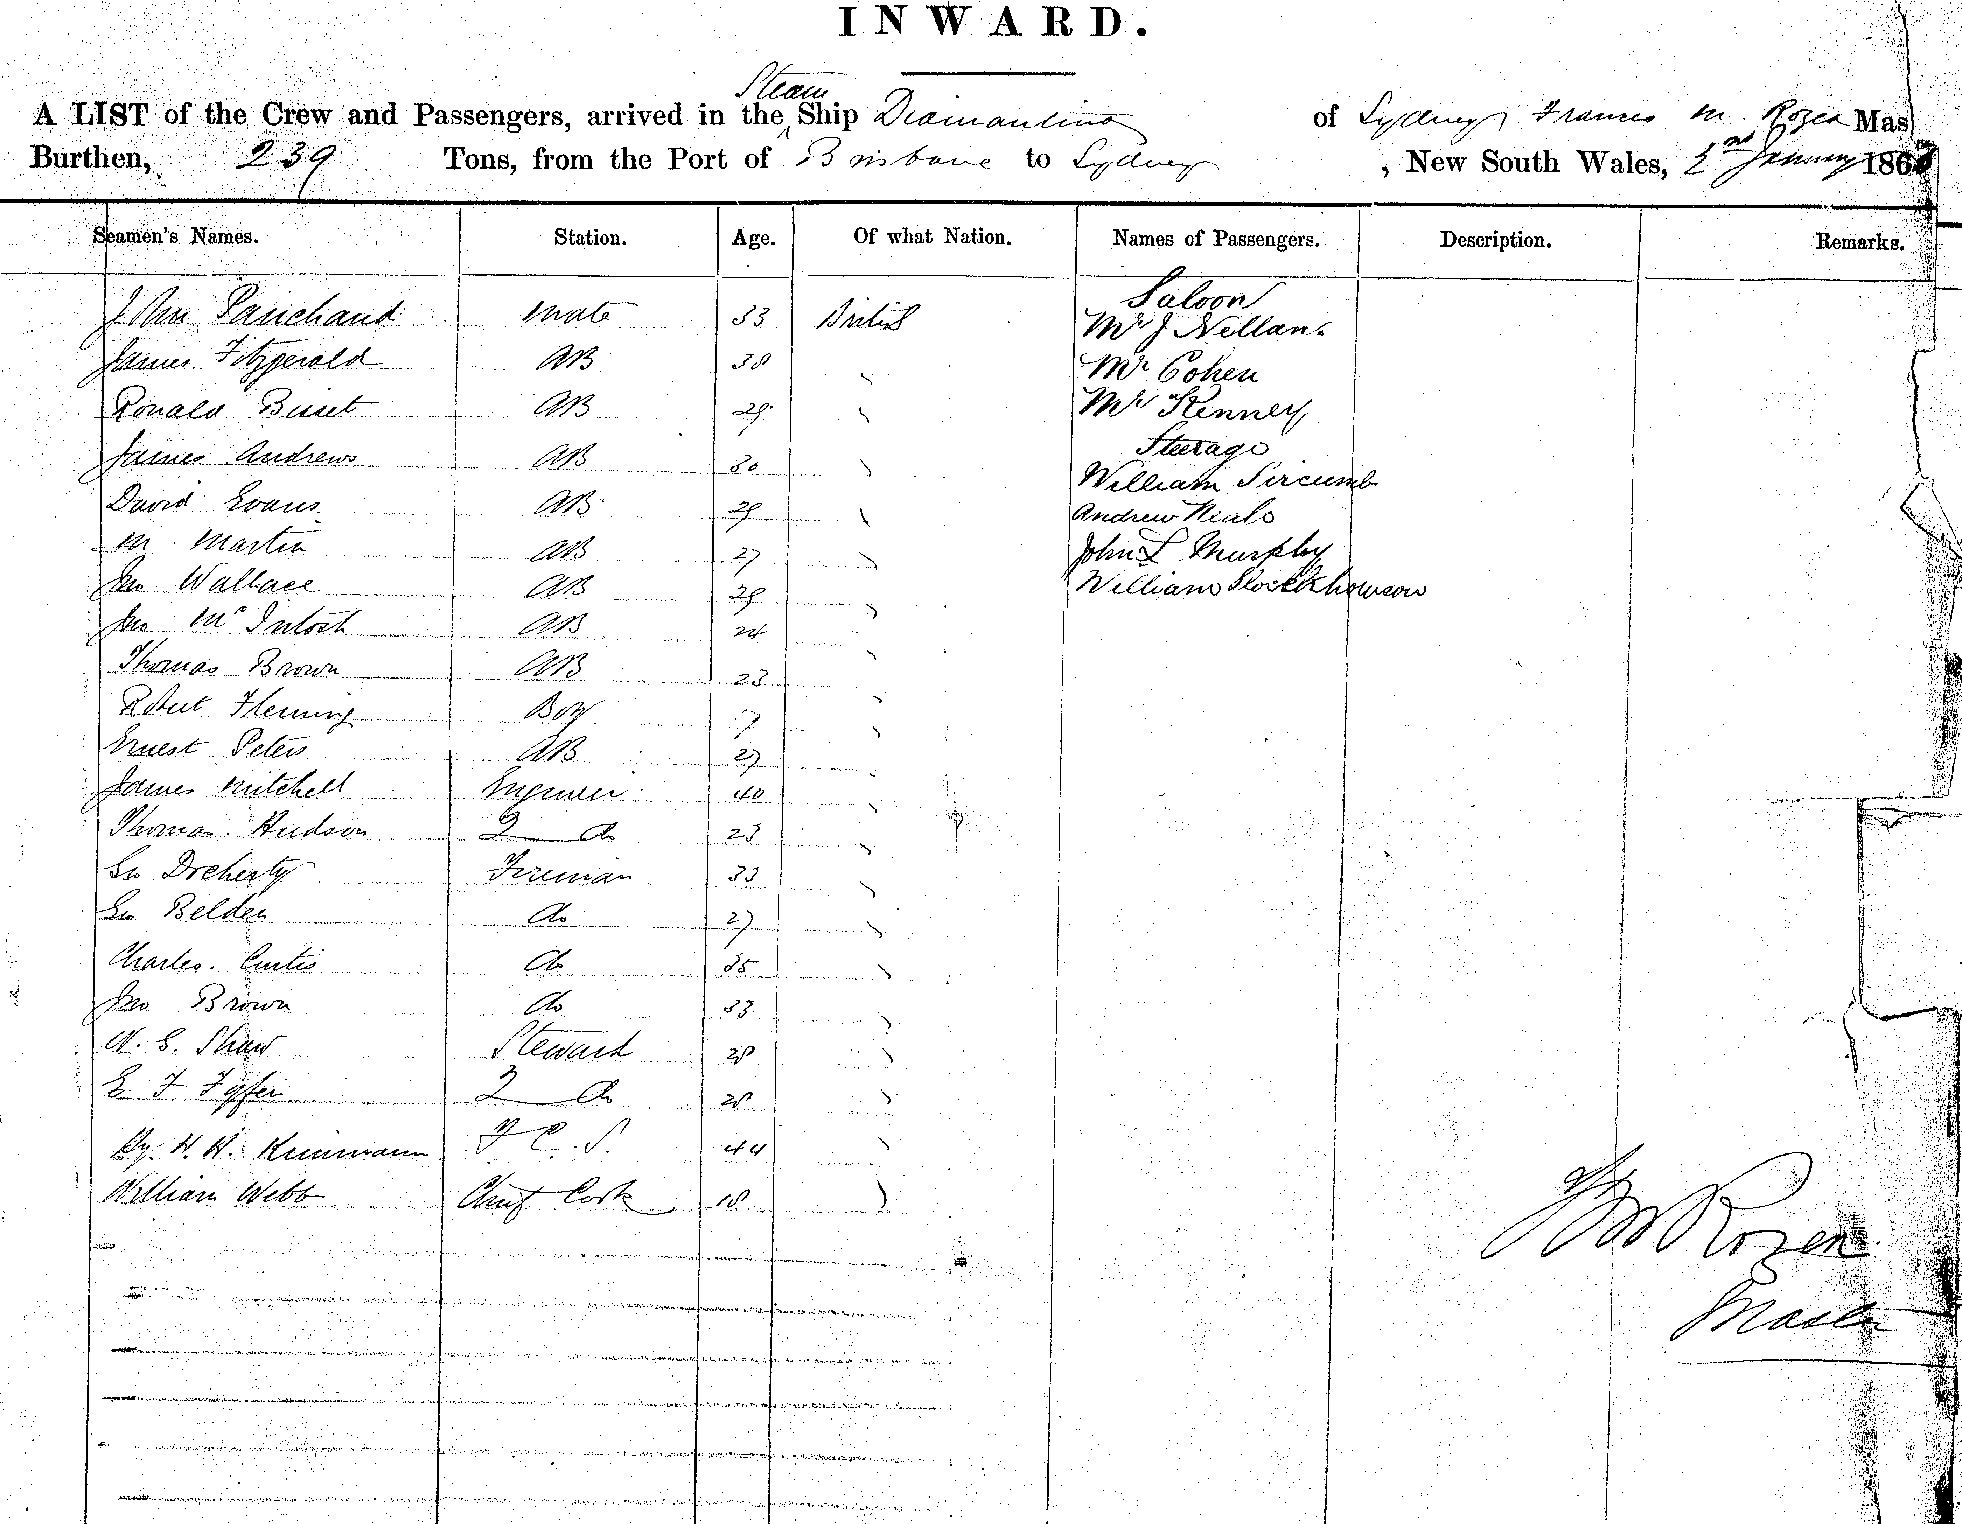 INWARD.
Steam
A LIST of the Crew and Passengers, arrived in the Ship Diamantina of Sydney Francis M. Rozea Mas
Burthen, 239 Tons, from the Port of Brisbane to Sydney , New South Wales, 2nd January 186
Seamen's Names. Station. Age. Of what Nation. Names of Passengers. Description. Remarks.
Saloon
John Panchaud Mate 33 British Mr J Nellan
James Fitzgerald AB 38 Mr Cohen
Ronald Bisset AB 29 Mr Kenney
Steerage
James Andrews AB 30 William Sircumb
David Evans AB 29 Andrew Neale
M Martin AB 27 John L Murphy
Jno Wallace AB 29 William
Jno McIntosh AB 24
Thomas Brown AB 23
Robert Fleming Boy 17
Ernest Peters AB 27
James Mitchell Engineer 40
Thomas Hudson 2 do 23
Geo Docherty Fireman 33
Geo Belden do 27
Charles Curtis do 35
Jno Brown do 33
W. G. Shaw Steward 28
G F Fyfer 2 do 28
Hy. H. H. F C. S. 44
William Webb Chief Cook 18
F M Rozea
Master